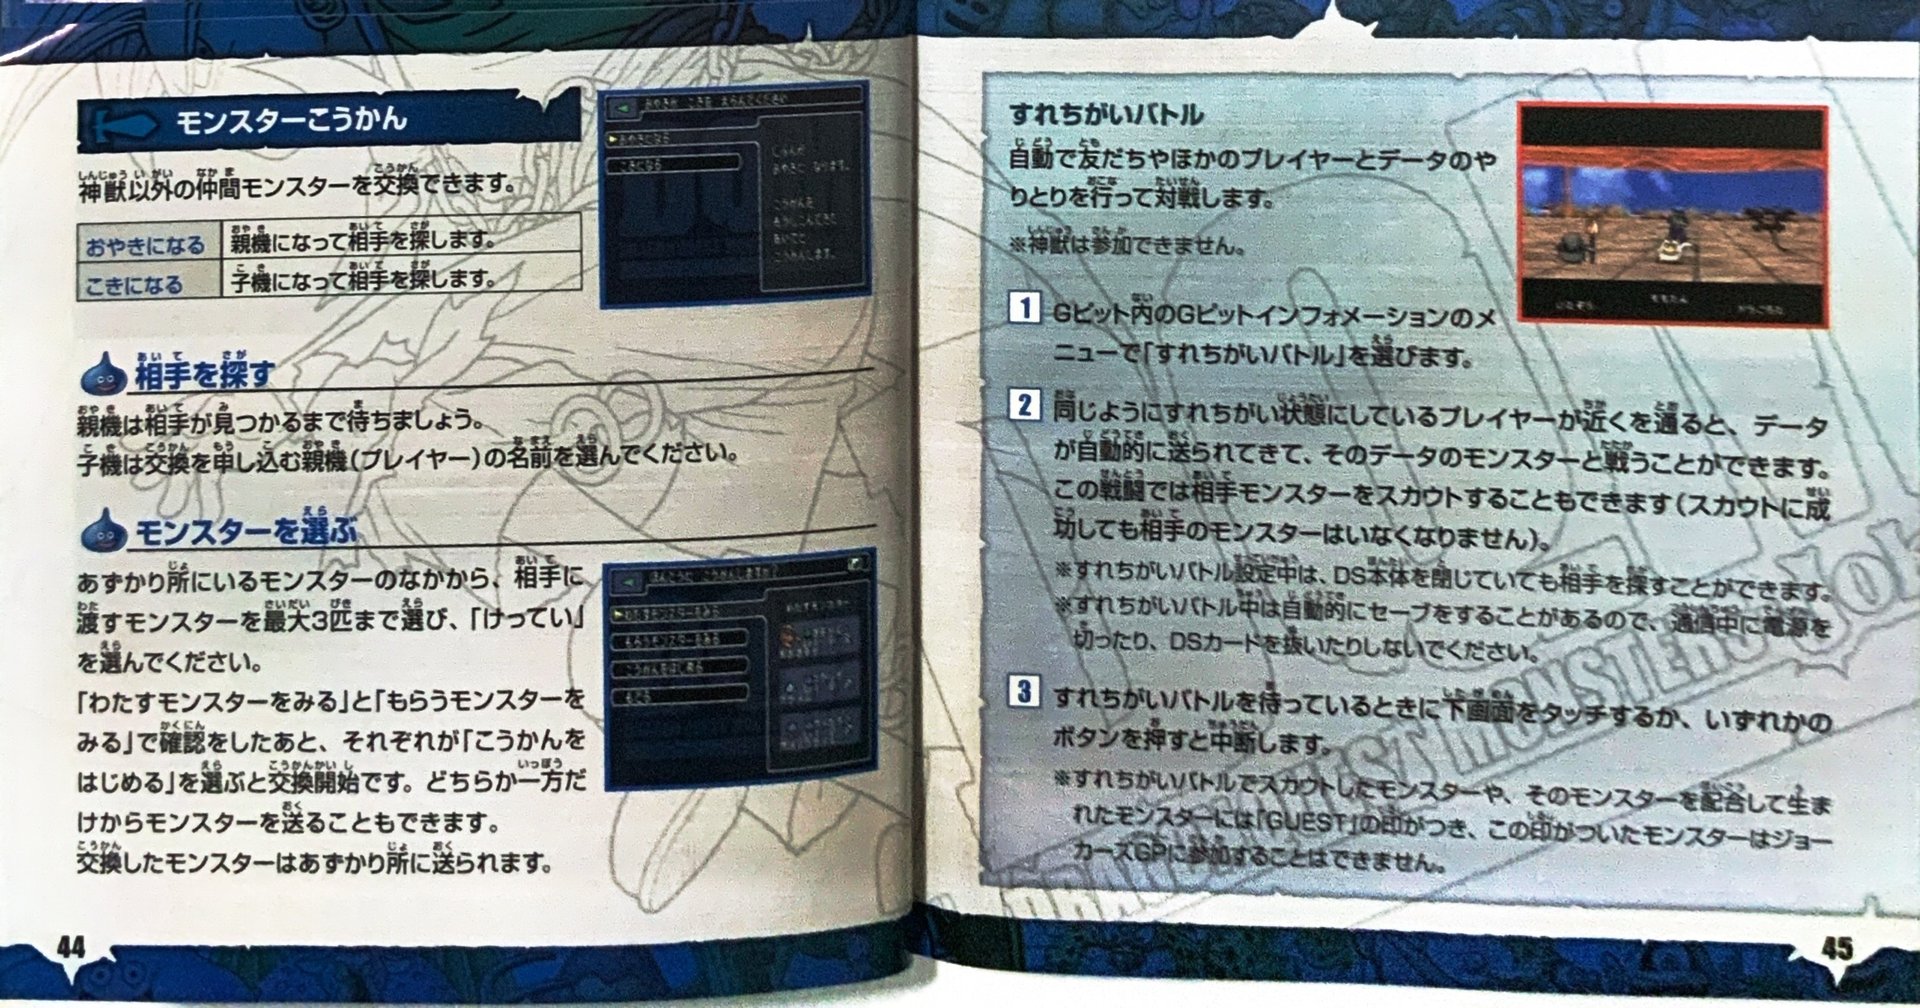 モンスターこうかん
神獣以外の仲間モンスターを交換できます。
おやきになる 親機になって相手を探します。
こきになる 子機になって相手を探します。
相手を探す
親機は相手が見つかるまで待ちましょう。
子機は交換を申し込む親機(プレイヤー)の名前を選んでください。
モンスターを選ぶ
あずかり所にいるモンスターのなかから、相手に
渡すモンスターを最大3匹まで選び、「けってい」
を選んでください。
「わたすモンスターをみる」と「もらうモンスターを
みる」で確認をしたあと、それぞれが「こうかんを
はじめる」を選ぶと交換開始です。どちらか一方だ
けからモンスターを送ることもできます。
交換したモンスターはあずかり所に送られます。
44
すれちがいバトル
自動で友だちやほかのプレイヤーとデータのや
りとりを行って対戦します。
※神獣は参加できません。
1 Gピット内のGピットインフォメーションのメ
ニューで「すれちがいバトル」を選びます。
2 同じようにすれちがい状態にしているプレイヤーが近くを通ると、データ
が自動的に送られてきて、そのデータのモンスターと戦うことができます。
この戦闘では相手モンスターをスカウトすることもできます(スカウトに成
功しても相手のモンスターはいなくなりません)。
※すれちがいバトル設定中は、DS本体を閉じていても相手を探すことができます。
※すれちがいバトル中は自動的にセーブをすることがあるので、通信中に電源を
切ったり、DSカードを抜いたりしないでください。
3 すれちがいバトルを待っているときに下画面をタッチするか、いずれかの
ボタンを押すと中断します。
※すれちがいバトルでスカウトしたモンスターや、そのモンスターを配合して生ま
れたモンスターには「GUEST」の印がつき、この印がついたモンスターはジョー
カーズGPに参加することはできません。
45